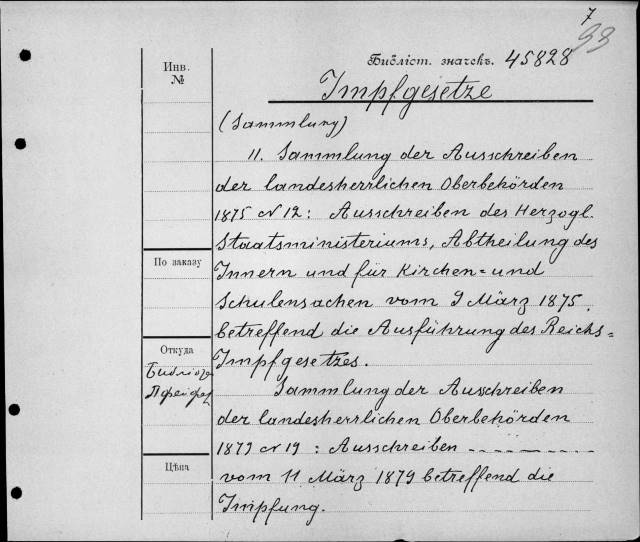 7
93
Инв.
№
Библіот. значекъ. 45828
Impfgesetze
(Sammlung)
11. Sammlung der Ausschreiben
der landesherrlichen Oberbehörden
1875 N 12: Ausschreiben des Herzogl.
Staatsministeriums, Abtheilung des
По заказу
Innern und für Kirchen= und
Schulensachen vom 9 März 1875.
betreffend die Ausführung des Reichs=
Откуда
Impfgesetzes.
Sammlung der Ausschreiben
der landesherrlichen Oberbehörden
1879 N 19: Ausschreiben – – – – – –
Цѣна
vom 11 März 1879 betreffend die
Impfung.